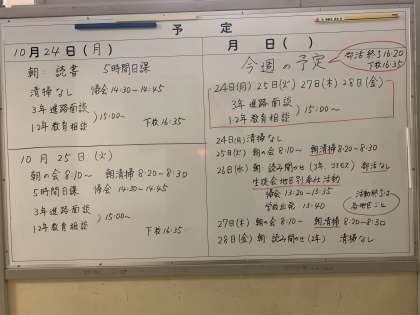 予定
10月24日(月)
朝: 読書 5時間日課
清掃なし 帰会 14:30~14:45
3年進路面談
1・2年教育相談 15:00~
下校 16:35
10月25日(火)
朝の会 8:10~ 朝清掃 8:20~8:30
5時間日課 帰会 14:30~14:45
3年進路面談
1・2年教育相談 15:00~
下校 16:35
月 日( )
今週の予定
部活終了 16:20
下校 16:35
24日(月) 25日(火) 27日(木) 28日(金)
3年進路面談
1・2年教育相談 15:00~
24日(月) 清掃なし
25日(火) 朝の会 8:10~ 朝清掃 8:20~8:30
26日(水) 朝 読み聞かせ 部活なし
生徒会地区別奉仕活動
帰会 13:20~13:35
学校出発 13:40
活動終了は
各地区ごと
27日(木) 朝の会 8:10~ 朝清掃 8:20~8:30
28日(金) 朝 読み聞かせ(2年) 清掃なし